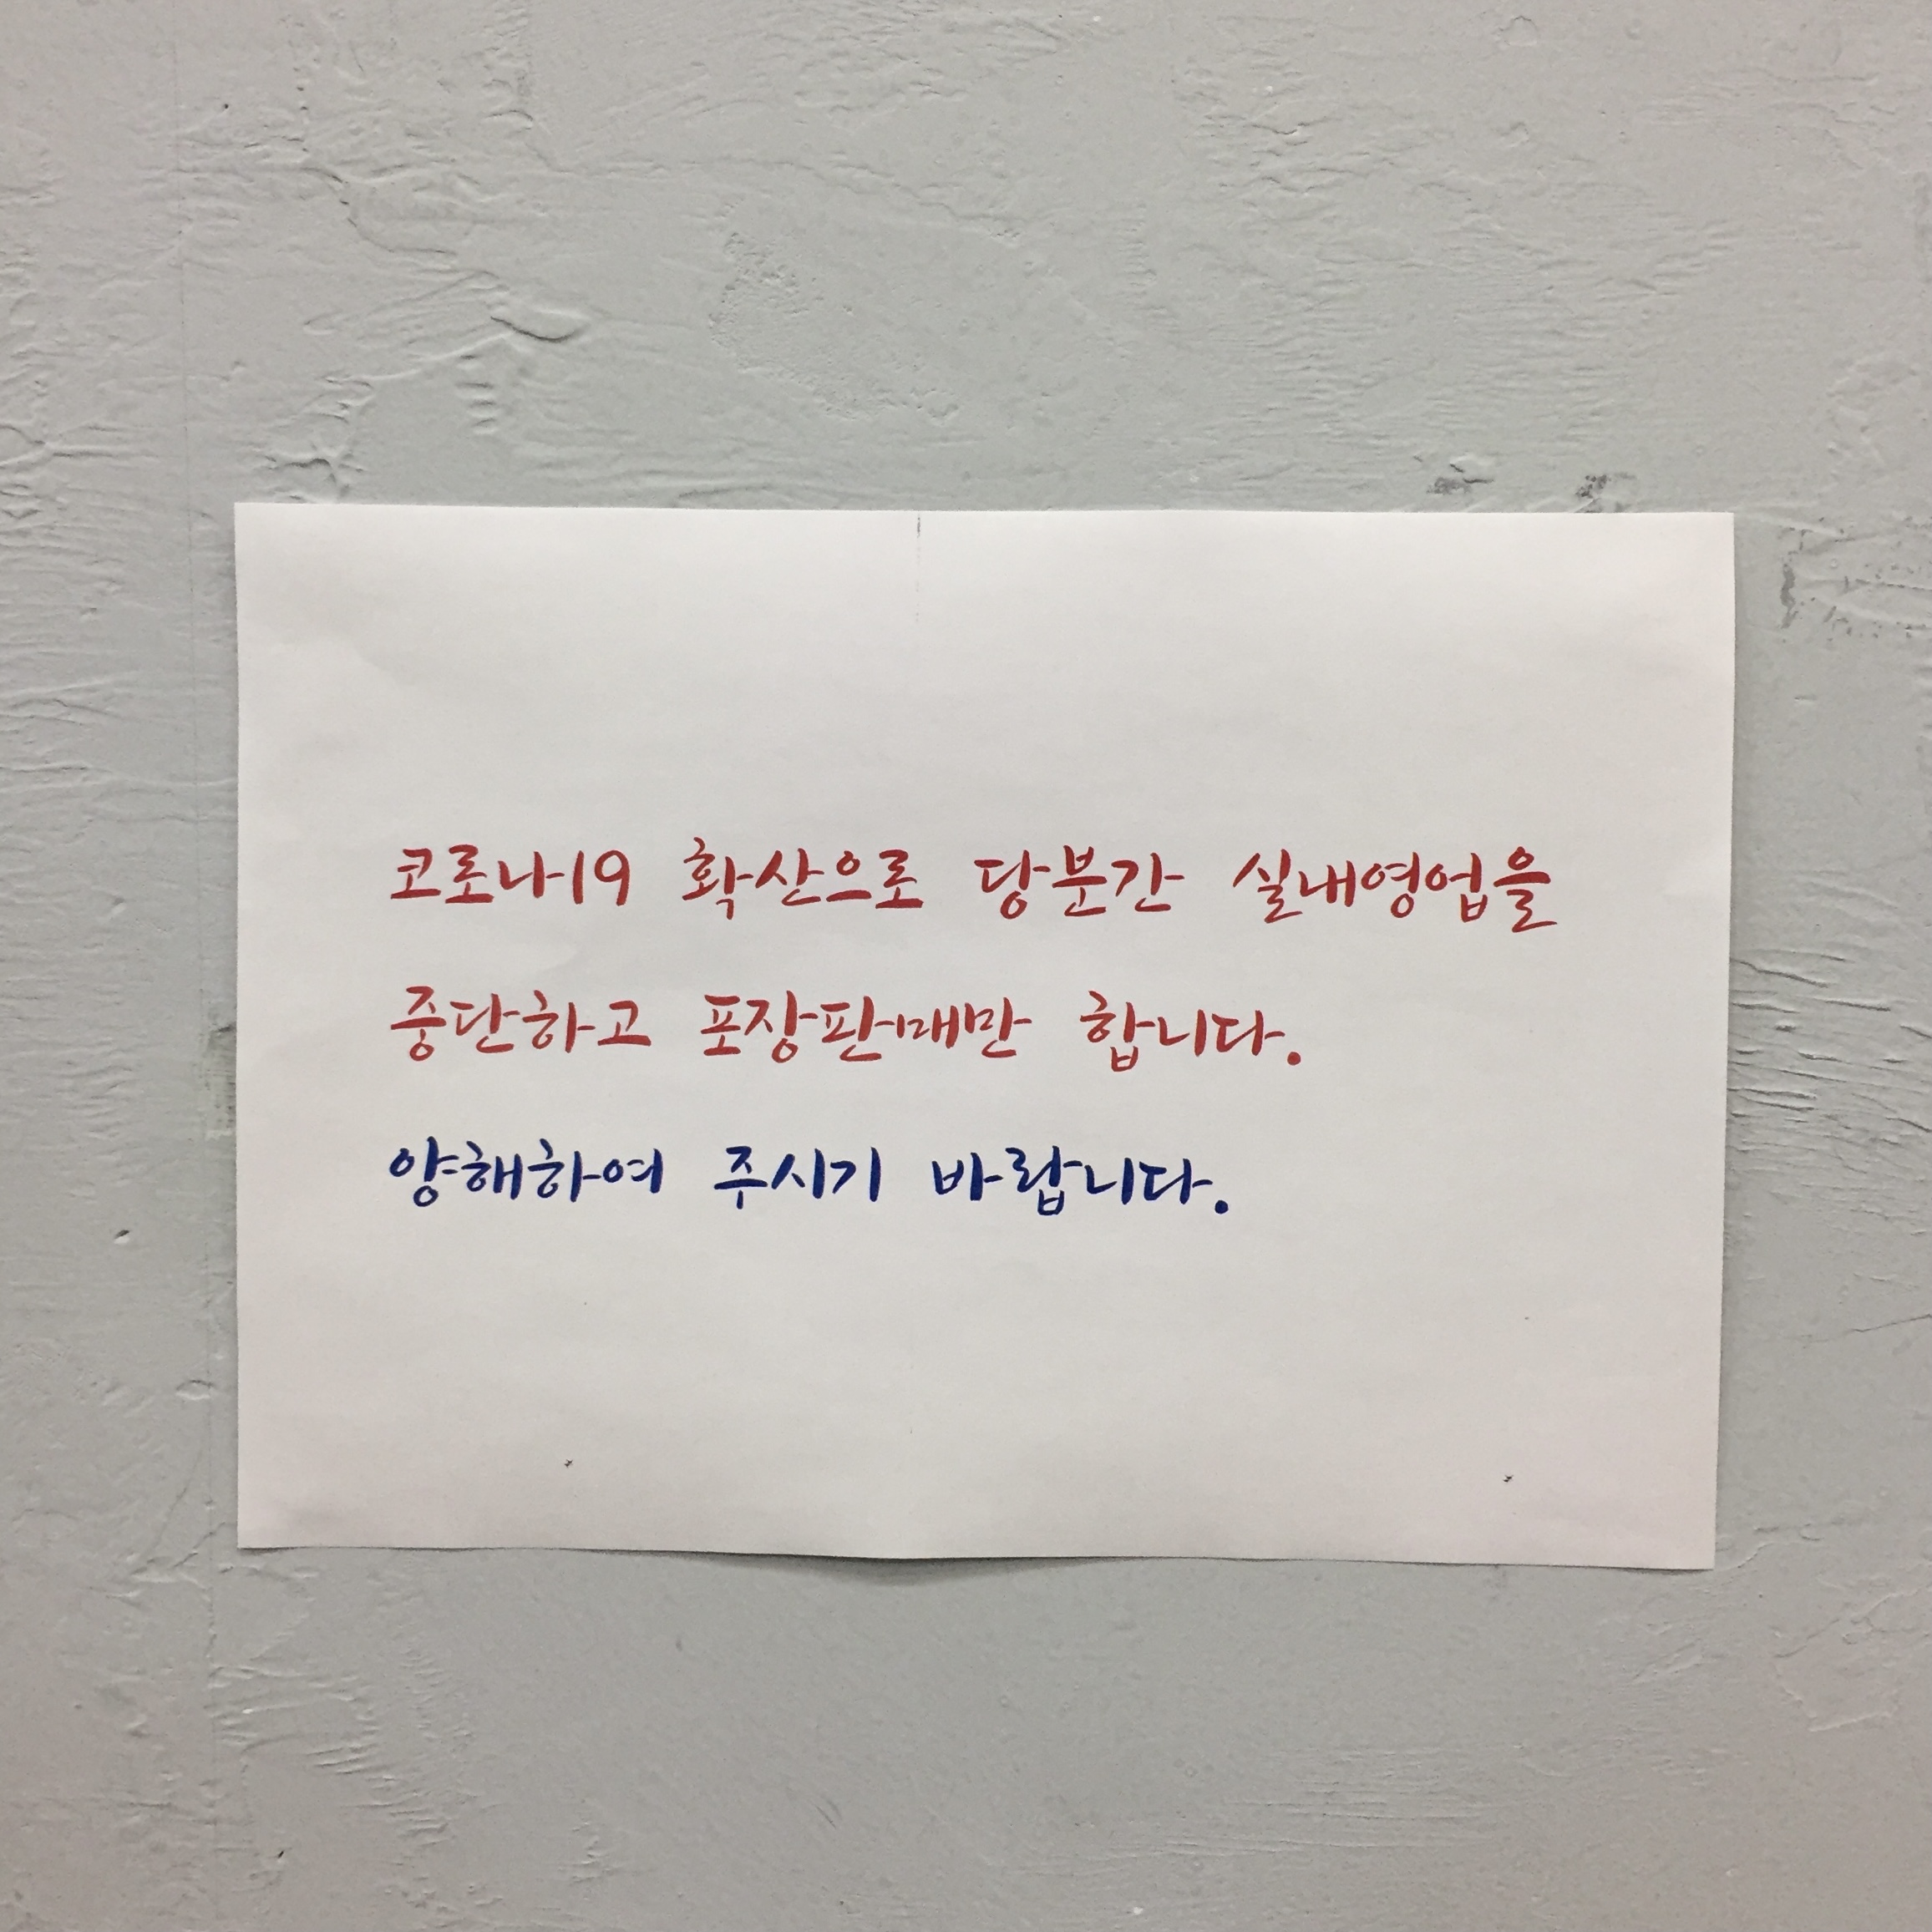 코로나19 확산으로 당분간 실내영업을
중단하고 포장판매만 합니다.
양해하여 주시기 바랍니다.